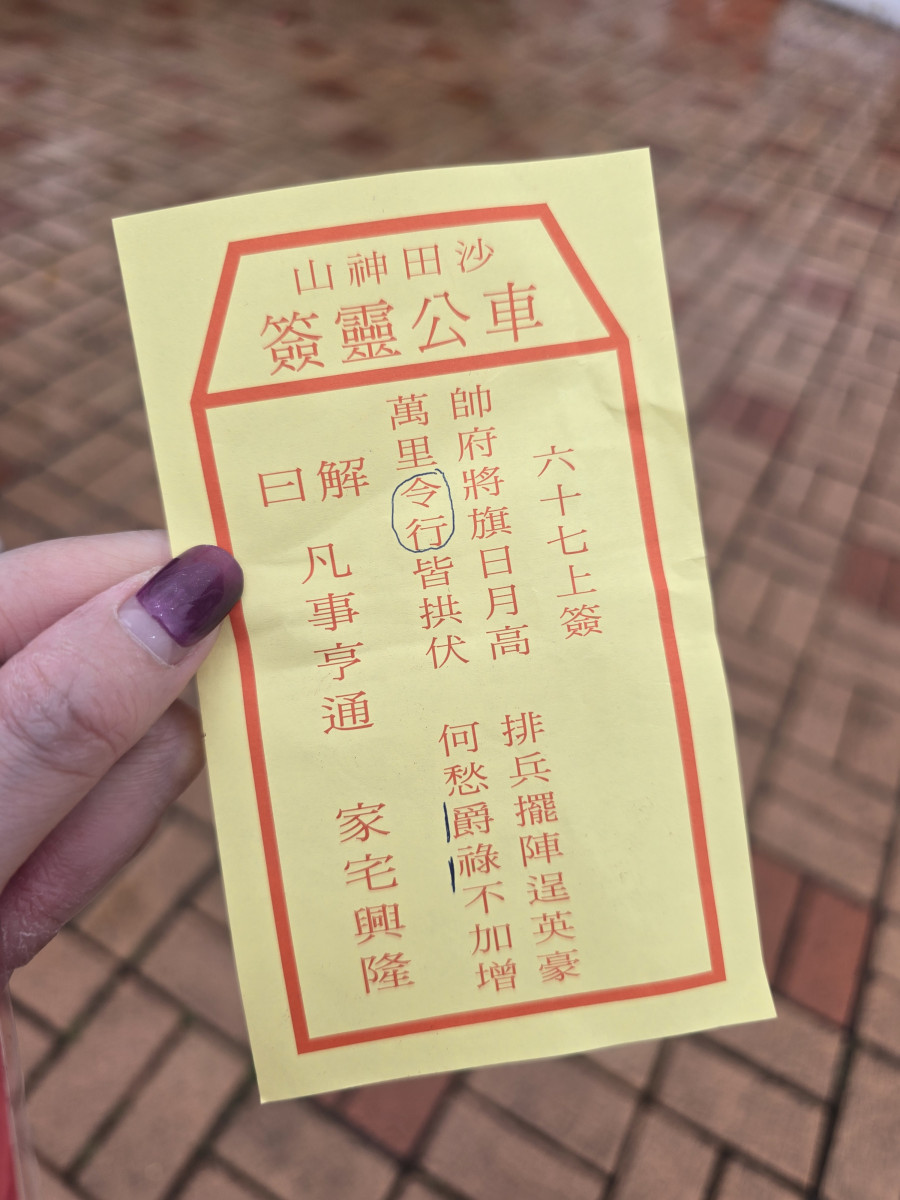 沙田神山
車公靈簽
六十七上簽
帥府將旗日月高 排兵擺陣逞英豪
萬里令行皆拱伏 何愁爵祿不加增
解曰 凡事亨通 家宅興隆